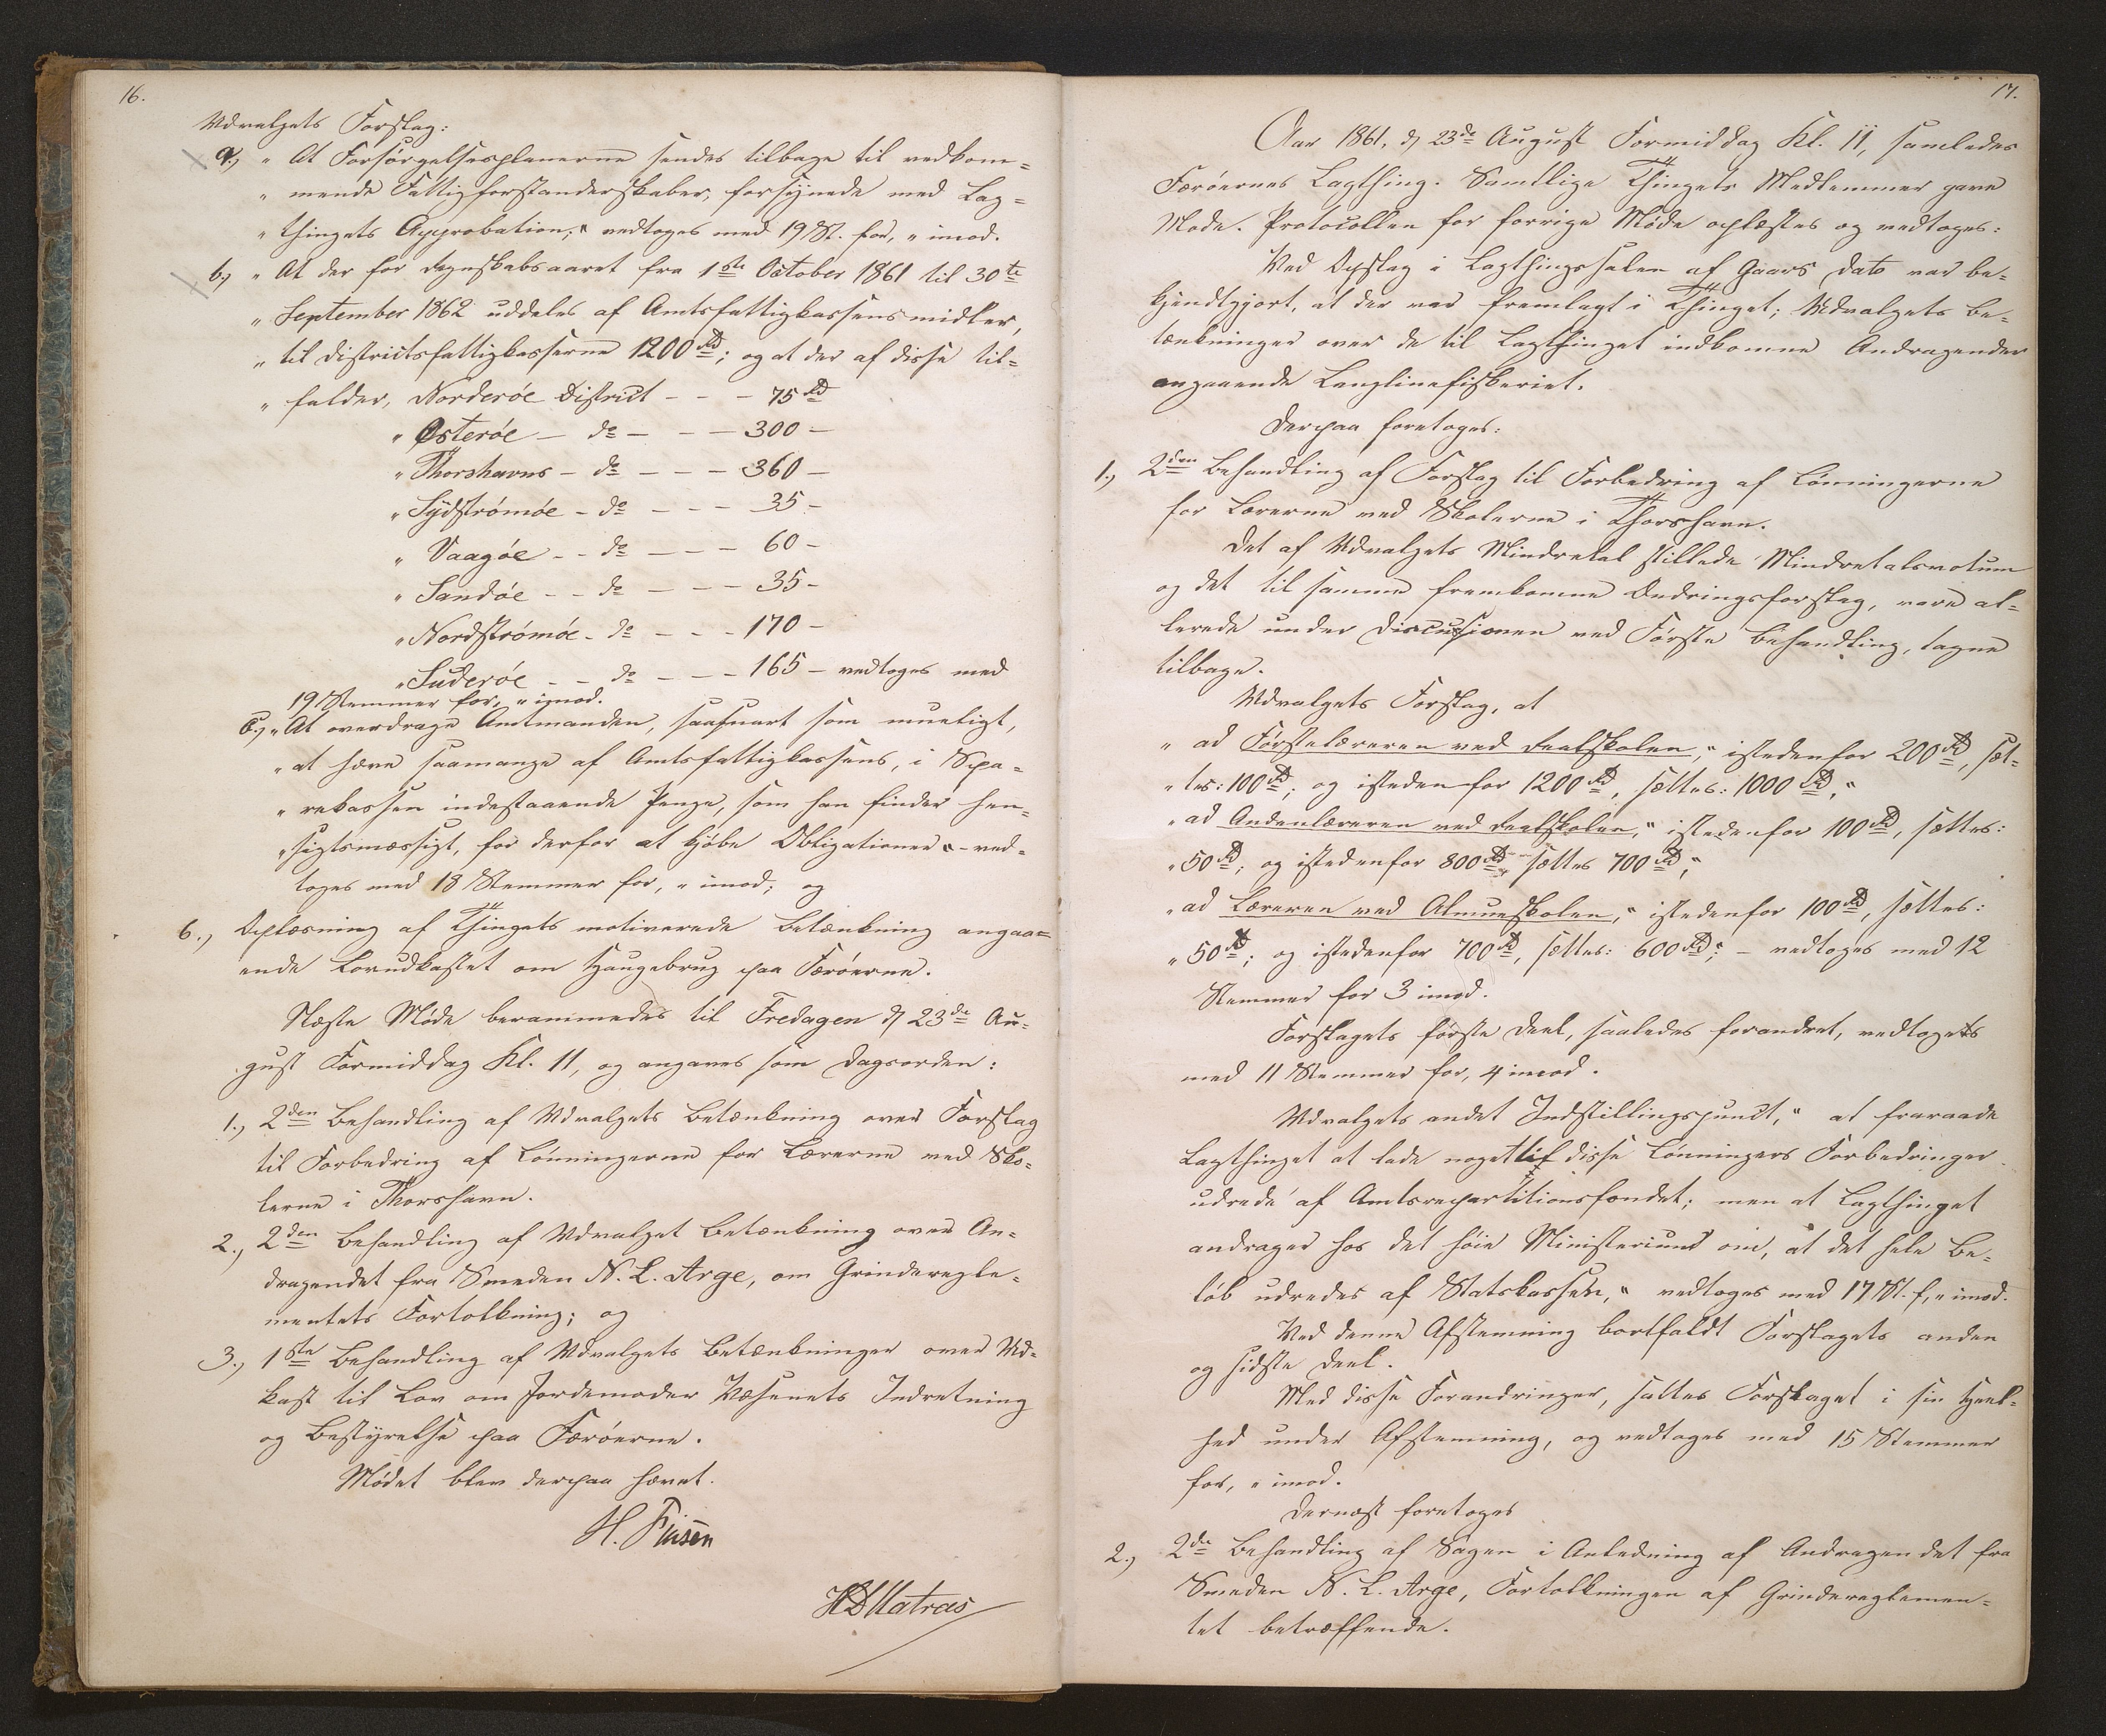 16.
Udvalgets Forslag:
a., „ At Forsørgelsesplanerne sendes tilbage til vedkom=
„ mende Fattigforstanderskaber, forsynede med Lag=
„ thingets Approbation," vedtoges med 19 St. for, „ imod.
b., „ At der for Regnskabsaaret fra 1ste October 1861 til 30te
„ September 1862 uddeles af Amtsfattigkassens midler,
„ til Districtsfattigkasserne 1200 Rd; og at der af disse til=
„ falder, Norderöe District - - - 75 Rd
„ Østeröe - do - - - 300 -
„ Thorshavns - do - - - 360 -
„ Sydströmöe - do - - - 35 -
„ Vaagöe - - do - - - 60 -
„ Sandöe - - do - - - 35 -
„ Nordströmöe - do - - - 170 -
„ Suderöe - - do - - - 165 - vedtoges med
19 Stemmer for, „ imod.
c., „ At overdrage Amtmanden, saasnart som mueligt,
„ at hæve saamange af Amtsfattigkassens, i Spa=
„ rekassen indestaaende Penge, som han finder hen=
„ sigtsmæssigt, for derfor at kjöbe Obligationer" - ved=
toges med 18 Stemmer for, „ imod; og
6., Oplæsning af Thingets motiverede Betænkning angaa=
ende Lovudkastet om Haugebrug paa Færöerne.
Næste Möde berammedes til Fredagen d 23de Au=
gust Formiddag Kl. 11, og angaves som Dagsorden:
1., 2den Behandling af Udvalgets Betænkning over Forslag
til Forbedring af Lönningerne for Lærerne ved Sko=
lerne i Thorshavn.
2., 2den Behandling af Udvalget Betænkning over An=
dragendet fra Smeden N. L. Arge, om Grindereglе=
mentets Fortolkning; og
3., 1ste Behandling af Udvalgets Betænkninger over Ud=
kast til Lov om Jordemoder Væsenets Indretning
og Bestyrelse paa Færöerne.
Mödet blev derpaa hævet.
H. Finsen
HDMatras
17.
Aar 1861, d 23de August Formiddag Kl. 11, samledes
Færöernes Lagthing. Samtlige Thingets Medlemmer gave
Möde. Protocollen for forrige Möde oplæstes og vedtoges:
Ved Opslag i Lagthingssalen af Gaars Dato var be=
kjendtgjort, at der var fremlagt i Thinget; Udvalgets Be=
tænkninger over de til Lagthinget indkomne Andragender
angaaende Langlinefiskeriet.
Derpaa foretoges:
1., 2den Behandling af Forslag til Forbedring af Lönningerne
for Lærerne ved Skolerne i Thorshavn.
Det af Udvalgets Mindretal stillede Mindretalsvotum
og det til samme fremkomne Ændringsforslag, vare al=
lerede under Discussionen ved Förste Behandling, tagne
tilbage.
Udvalgets Forslag, at
„ ad Förstelæreren ved Realskolen," istedenfor 200 Rd, sæt=
„ tes: 100 Rd; og istedenfor 1200 Rd, sættes: 1000 Rd,"
„ ad Andenlæreren ved Realskolen," istedenfor 100 Rd, sættes:
„ 50 Rd; og istedenfor 800 Rd, sættes 700 Rd,"
„ ad Læreren ved Almueskolen," istedenfor 100 Rd, sættes:
„ 50 Rd; og istedenfor 700 Rd, sættes: 600 Rd"; - vedtoges med 12
Stemmer for 3 imod.
Forslagets förste Deel, saaledes forandret, vedtoges
med 11 Stemmer for, 4 imod.
Udvalgets andet Indstillingspunct, „ at fraraade
Lagthinget at lade noget til disse Lönningers Forbedringer
udrede af Amtsrepartitionsfondet; men at Lagthinget
andrager hos det höie Ministerium om, at det hele Be=
löb udredes af Statskassen," vedtoges med 17 St. f, „ imod.
Ved denne Afstemning bortfaldt Forslagets anden
og sidste Deel.
Med disse Forandringer, sattes Forslaget i sin Heel=
hed under Afstemning, og vedtoges med 15 Stemmer
for, „ imod.
Dernæst foretoges
2., 2de Behandling af Sagen i Anledning af Andragendet fra
Smeden N. L. Arge, Fortolkningen af Grindereglemen=
tet betræffende.